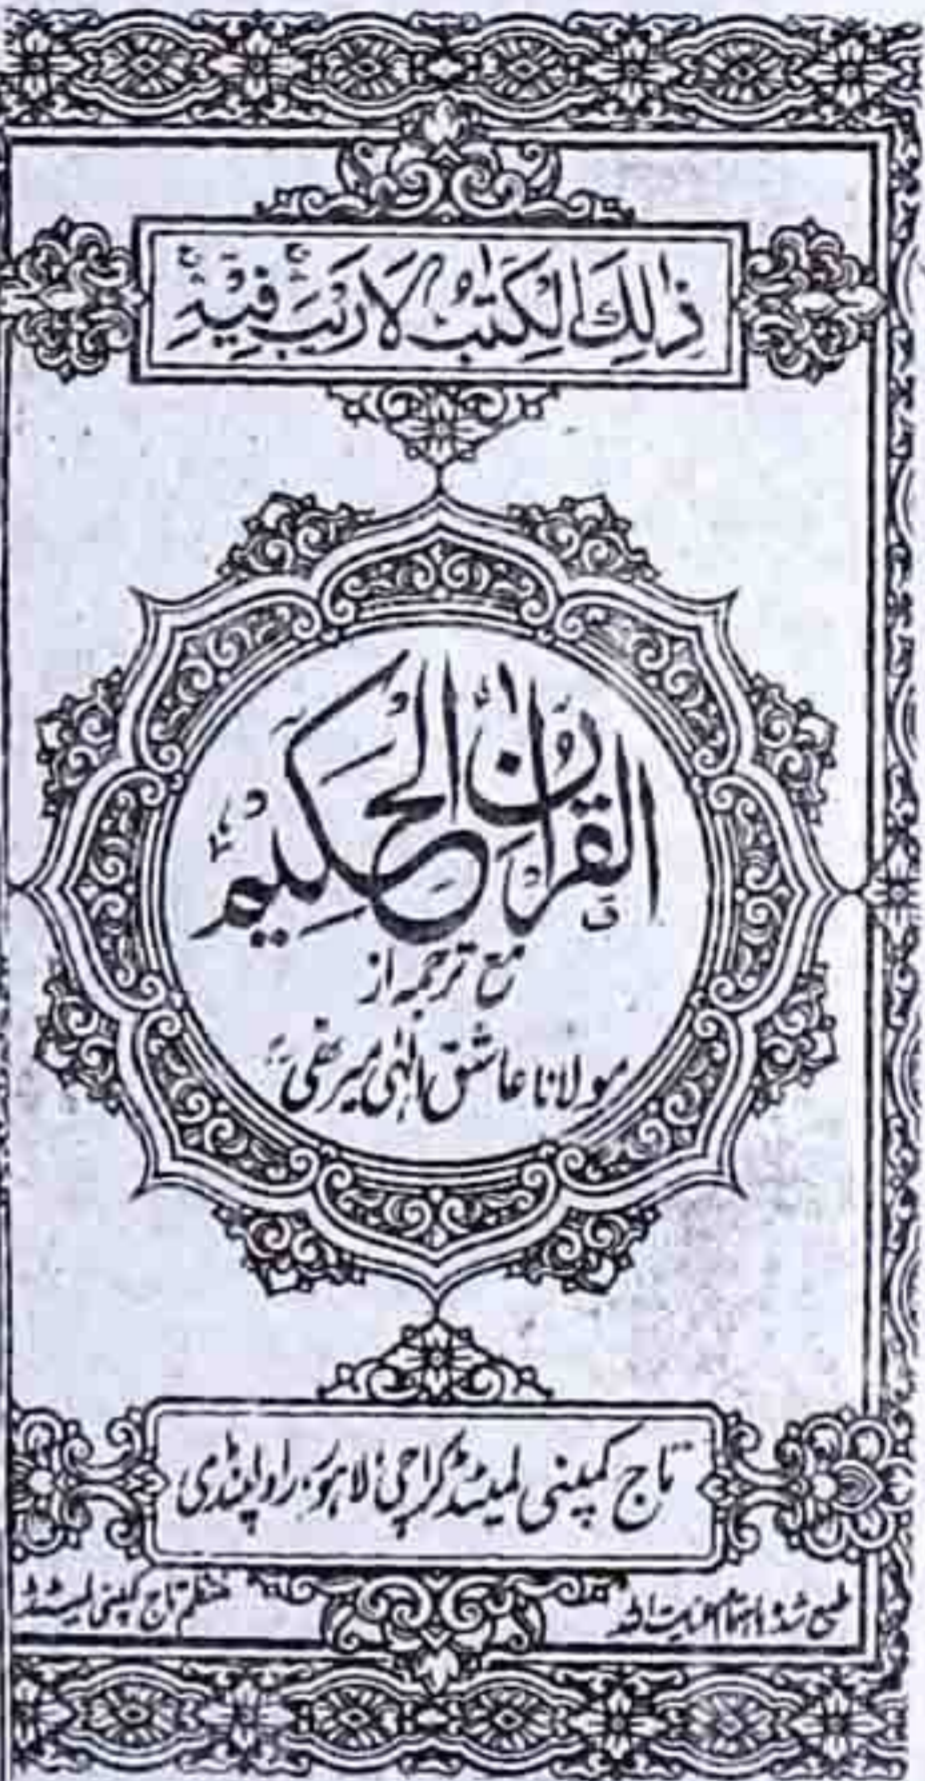 ذٰلِكَ الْكِتٰبُ لَا رَيْبَ فِيْهِ
القرآن الحكيم
مع ترجمہ از
مولانا عاشق الٰہی میرٹھیؒ
تاج کمپنی لمیٹڈ کراچی، لاہور، راولپنڈی
طبع شد باہتمام عنایت اللہ
منتظم تاج کمپنی لمیٹڈ